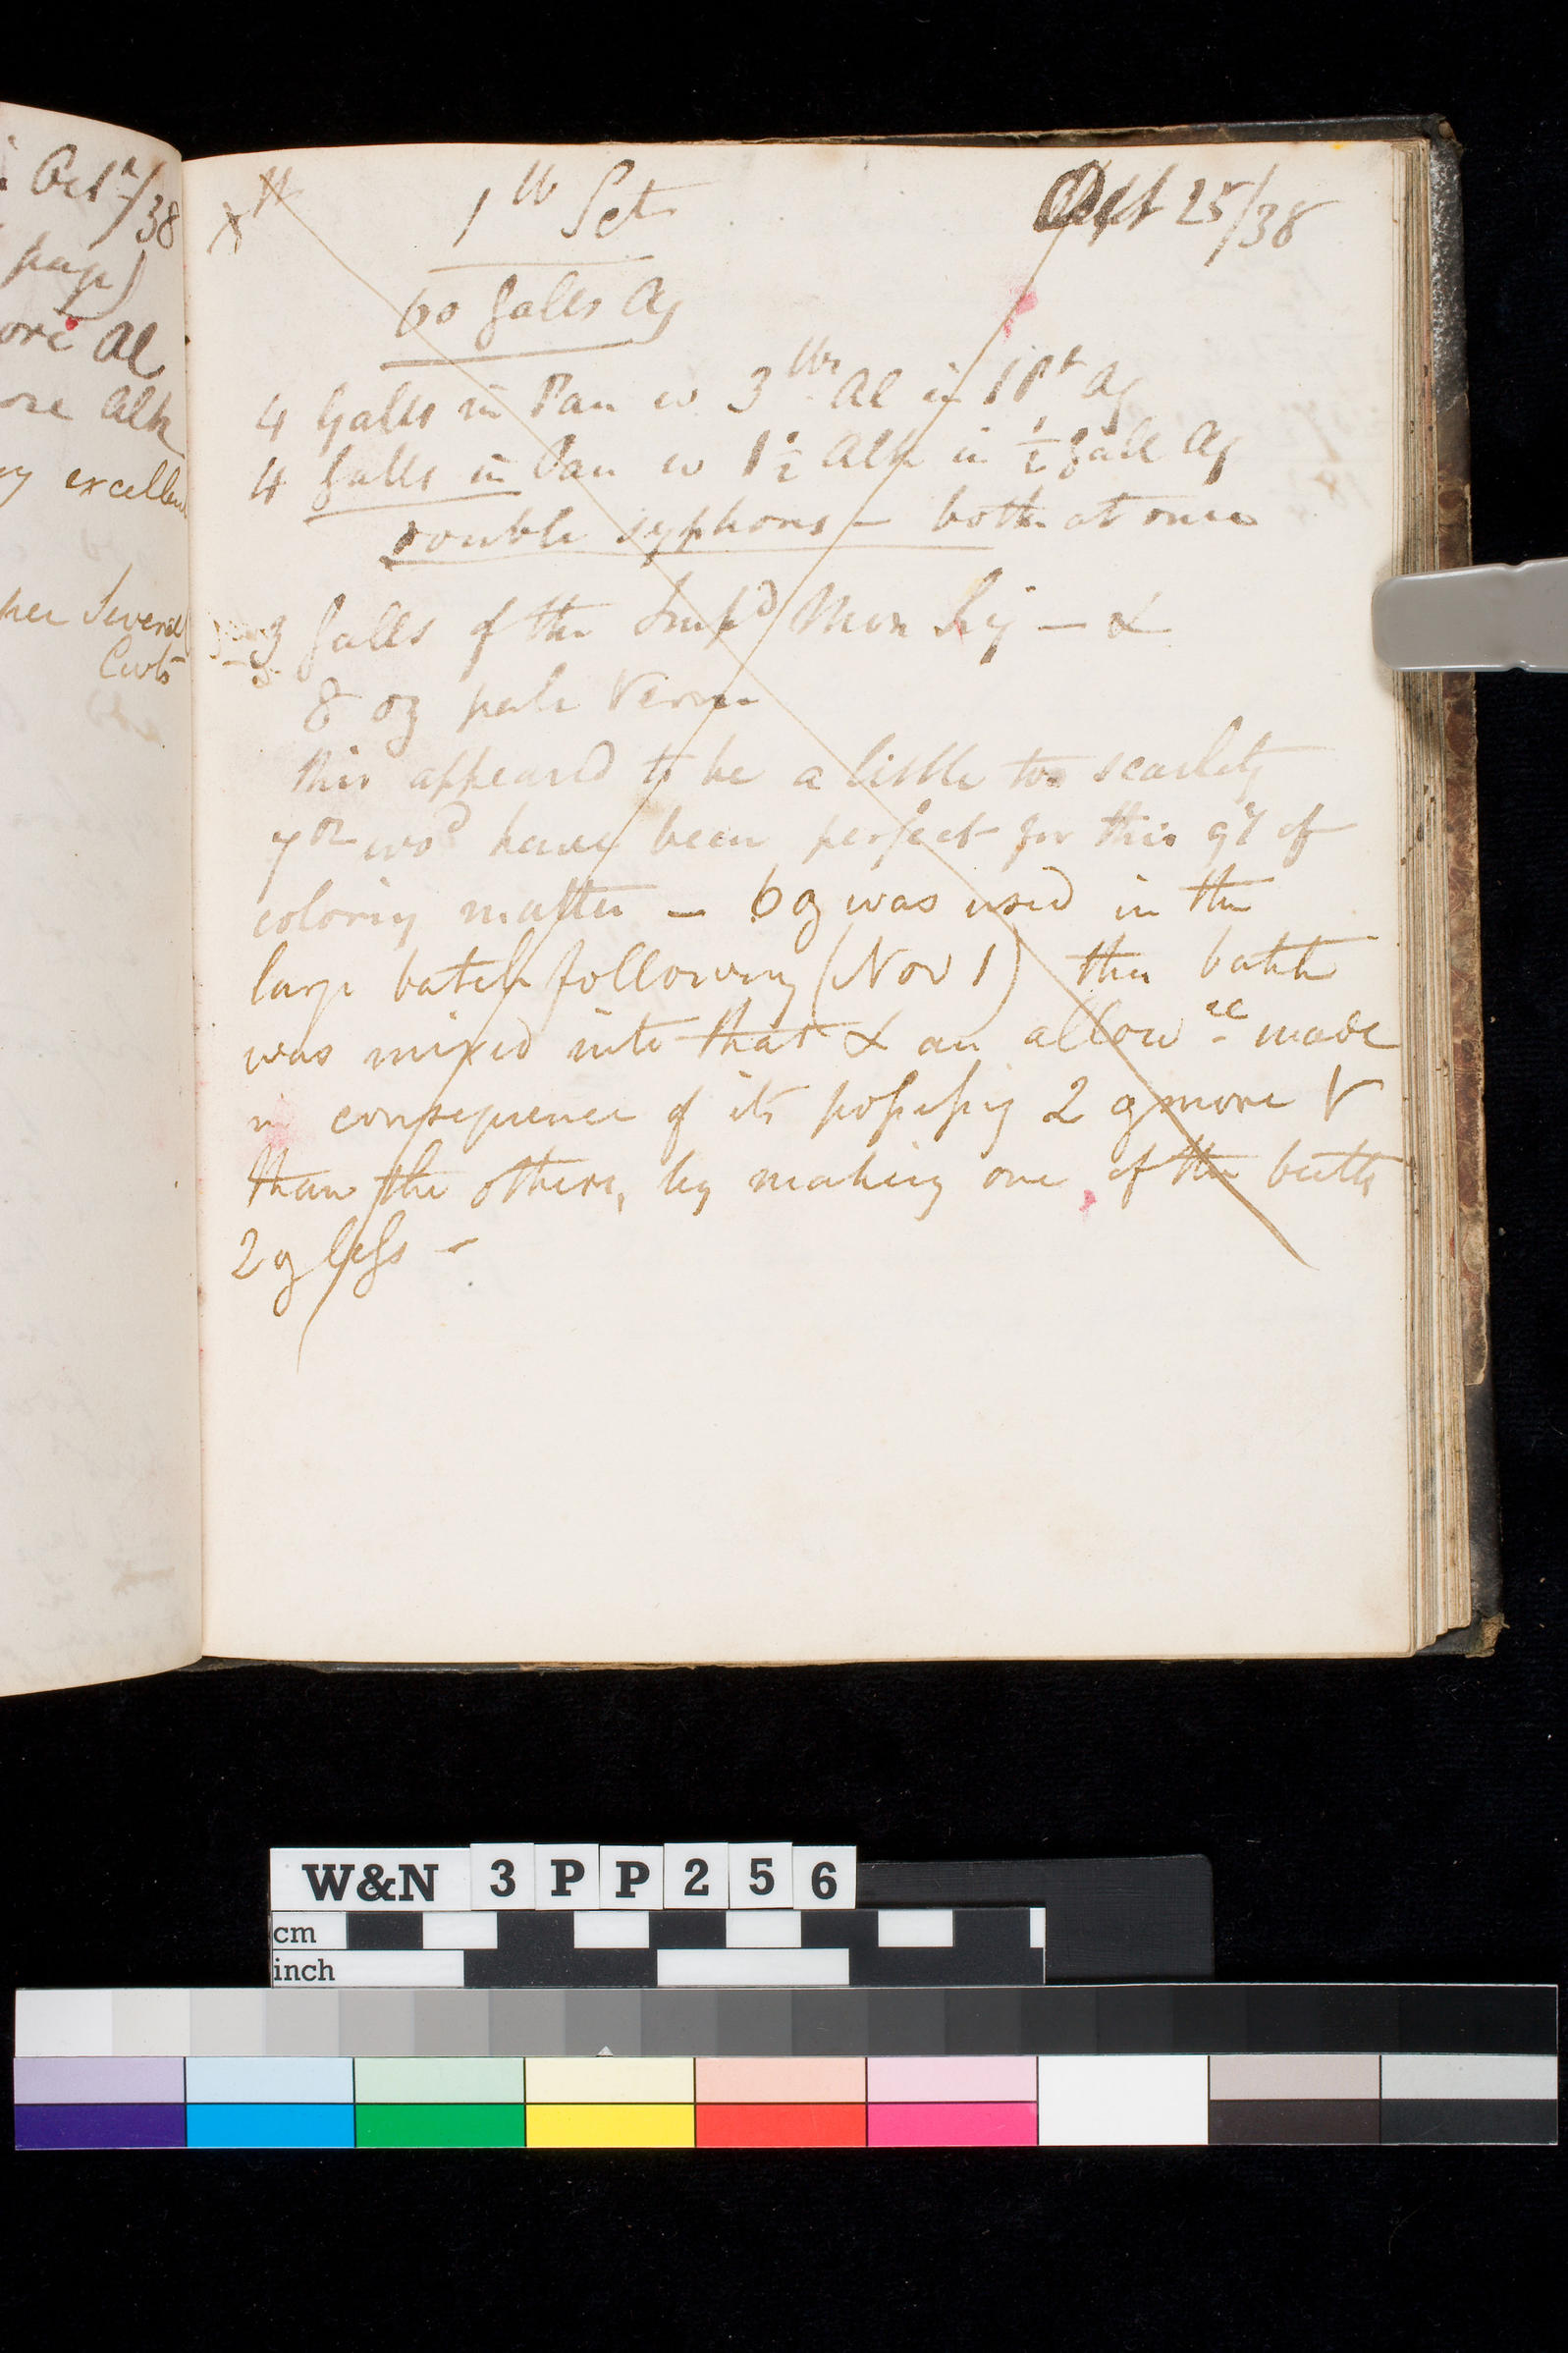 Oct 1st/38
page)
ore Al
ore Alk
ry excellen
her Several
Cwts
xx 1 lb Set Oct 25/38
60 Galls Aq
4 Galls in Pan w 3 lbs Al in 1 Pt Aq
4 Galls in Pan w 1 1/2 Alk in 1/2 Gall Aq
double syphons – both at once
3 Galls of the Liq – &
8 oz pale Verm
this appeard to be a little too scarlety
7 oz wod have been perfect for this qy of
coloring matter – 6 oz was used in the
large batch following (Nov 1) this batch
was mixed into that & an allowce made
in consequence of its possessing 2 oz more V
than the others, by making one of the butts
2 oz less –
W&N 3PP256
cm
inch